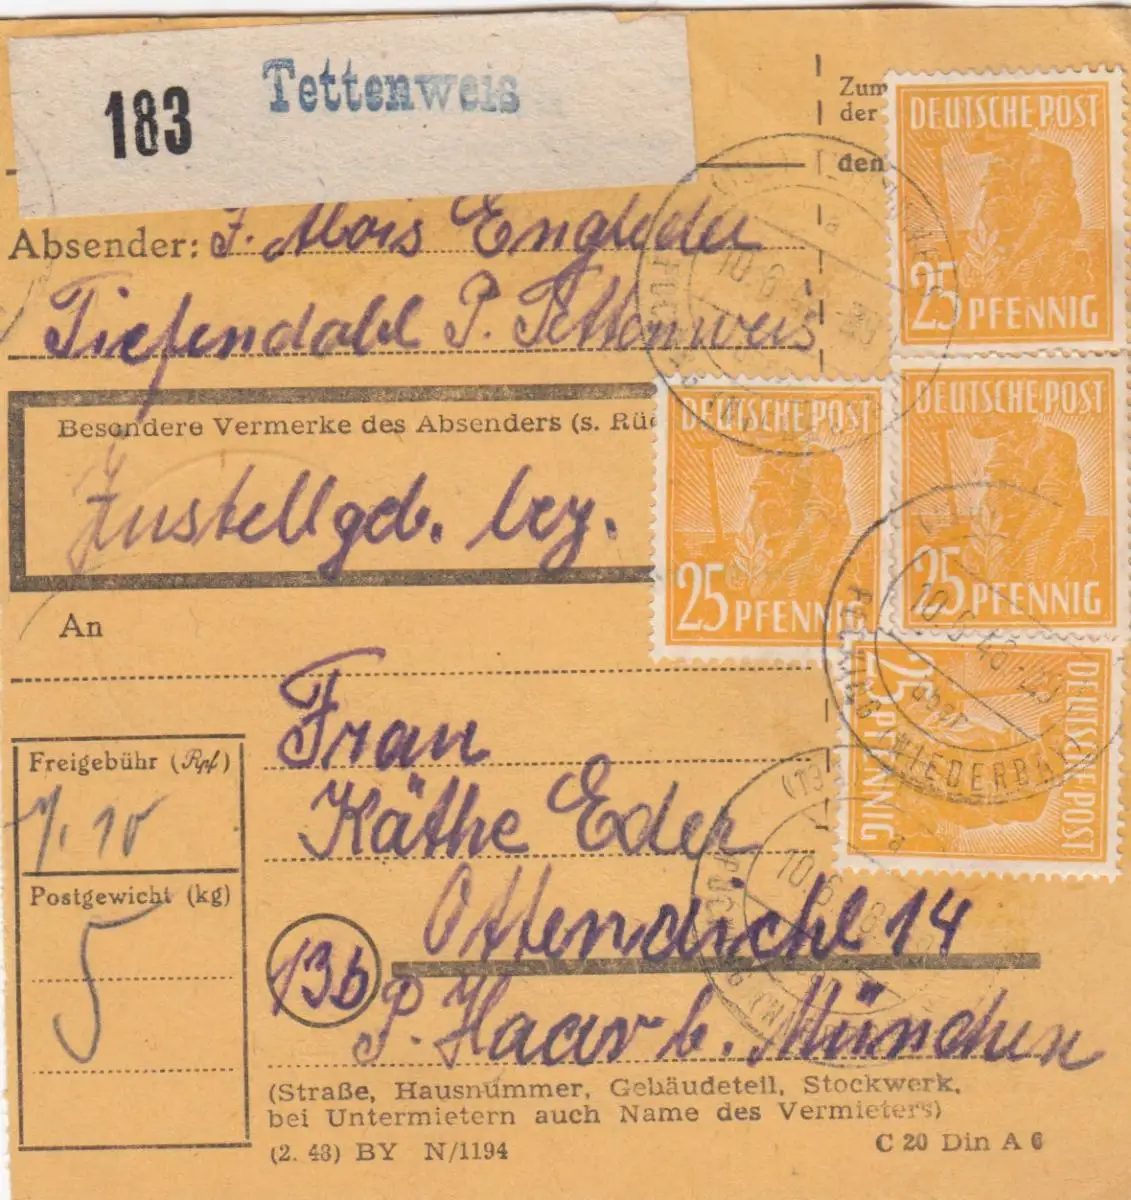 183 Tettenweis
Zum
der
den
Absender: J. Alois Englöder
Tiefendahl P. Tettenweis
Besondere Vermerke des Absenders (s. Rüc
Zustellgeb. bez.
DEUTSCHE POST
25 PFENNIG
DEUTSCHE POST
25 PFENNIG
DEUTSCHE POST
25 PFENNIG
DEUTSCHE POST
25 PFENNIG
10.6.48
POCKING (NIEDERBAY
10.6.48
10.6.48
An
Frau
Käthe Eder
Ottendichl 14
13b P. Haar b. München
Freigebühr (Rpf)
1,10
Postgewicht (kg)
5
(Straße, Hausnummer, Gebäudeteil, Stockwerk,
bei Untermietern auch Name des Vermieters)
(2. 48) BY N/1194
C 20 Din A 6